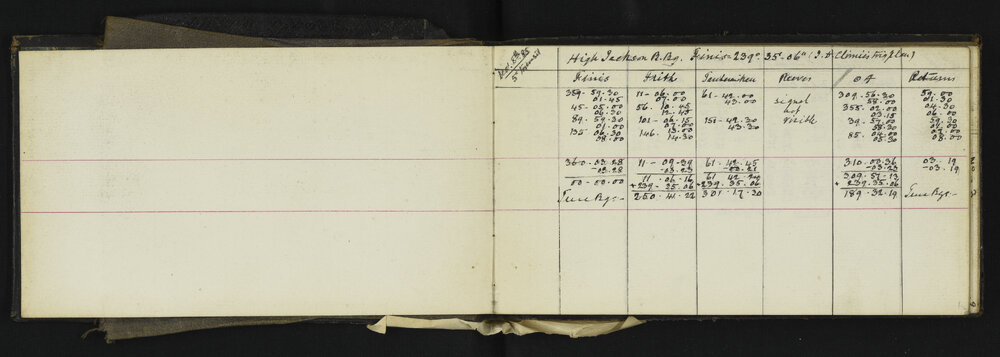 Nov. 5th 85
High Jackson B. Bg. Finis = 239° 35' 06"
Finis Frith Reeves OA Returns
359-59-30 11-06-00 61-42-00 309-56-30 59.00
01-45 07.00 43.00 signal 58.00 01.30
45-05-00 56. 10.45 not 355-02-00 04.30
06.30 12.45 visible 03.15 06.00
89-59-30 101-06-15 151-42.30 39.57.00 59.30
01.00 07.00 43.30 58.30
135 06.30 146. 13.00 85. 04.00
08.00 14.30 05.30 08.00
360-03-28 11-09-39 61-42-45 310-00-36 03.19
-03-28 -03-23 -00-21 -03-23 -03.19
00-00-00 11.06-16 61 42-24 309-57-13
+239-35-06 +239.35.06 +239.35.06
True Bgs:- 250.41.22 301-17-30 189.32.19 True Bgs:-